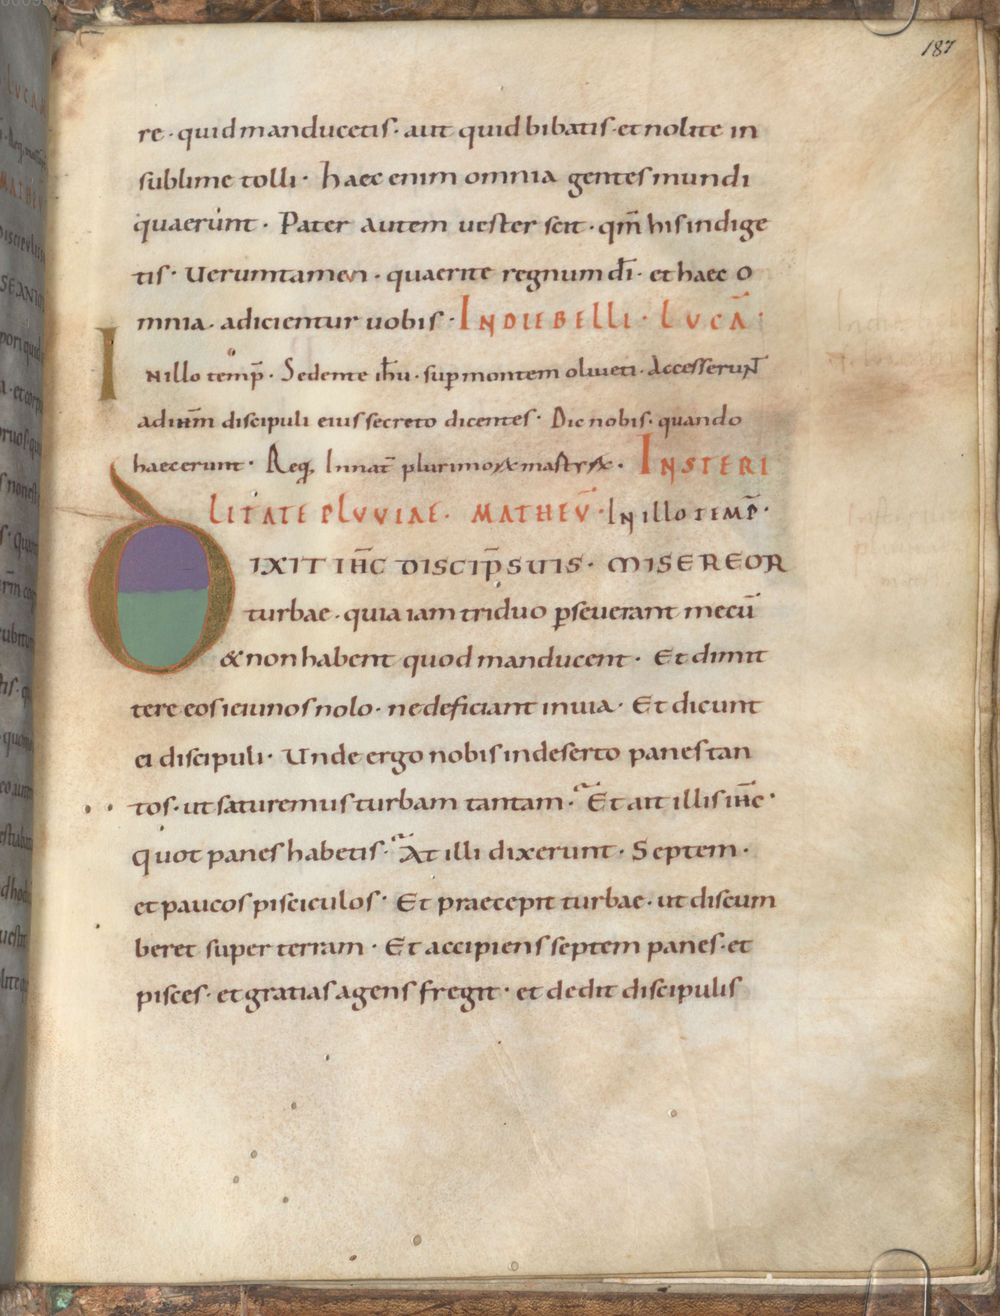 187
re · quid manducetis · aut quid bibatis · et nolite in
sublime tolli · haec enim omnia gentes mundi
quaerunt · Pater autem uester scit · qm̄ his indige
tis · Uerumtamen · quaerite regnum dī · et haec o
mnia · adicientur uobis · IN DIE BELLI · LUCĀ ·
IN illo temp̄ · Sedente ihu̅ · sup montem oliueti · Accesserunt
ad ihm̄ discipuli eius secreto dicentes · Dic nobis · quando
haec erunt · Req, In nat̄ plurimorum martyrum · IN STERI
LITATE PLUVIAE · MATHEŪ · IN illo TEMP̄ ·
DIXIT IHC̄ DISCIP̄ SUIS · MISEREOR
turbae · quia iam triduo ꝑseuerant mecū
& non habent quod manducent · Et dimit
tere eos ieiunos nolo · ne deficiant in uia · Et dicunt
ei discipuli · Unde ergo nobis in deserto panes tan
tos · ut saturemus turbam tantam · Et ait illis ihc̄ ·
quot panes habetis · At illi dixerunt · Septem ·
et paucos pisciculos · Et praecepit turbae · ut discum
beret super terram · Et accipiens septem panes · et
pisces · et gratias agens fregit · et dedit discipulis